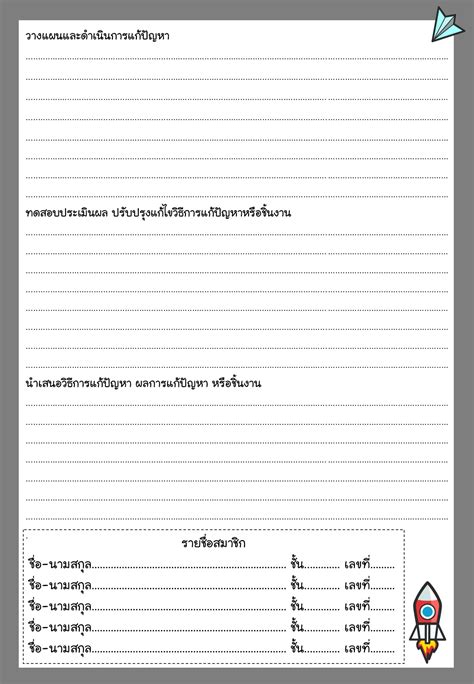 วางแผนและดำเนินการแก้ปัญหา
ทดสอบประเมินผล ปรับปรุงแก้ไขวิธีการแก้ปัญหาหรือชิ้นงาน
นำเสนอวิธีการแก้ปัญหา ผลการแก้ปัญหา หรือชิ้นงาน
รายชื่อสมาชิก
ชื่อ-นามสกุล.................................................... ชั้น........... เลขที่.......
ชื่อ-นามสกุล.................................................... ชั้น........... เลขที่.......
ชื่อ-นามสกุล.................................................... ชั้น........... เลขที่.......
ชื่อ-นามสกุล.................................................... ชั้น........... เลขที่.......
ชื่อ-นามสกุล.................................................... ชั้น........... เลขที่.......